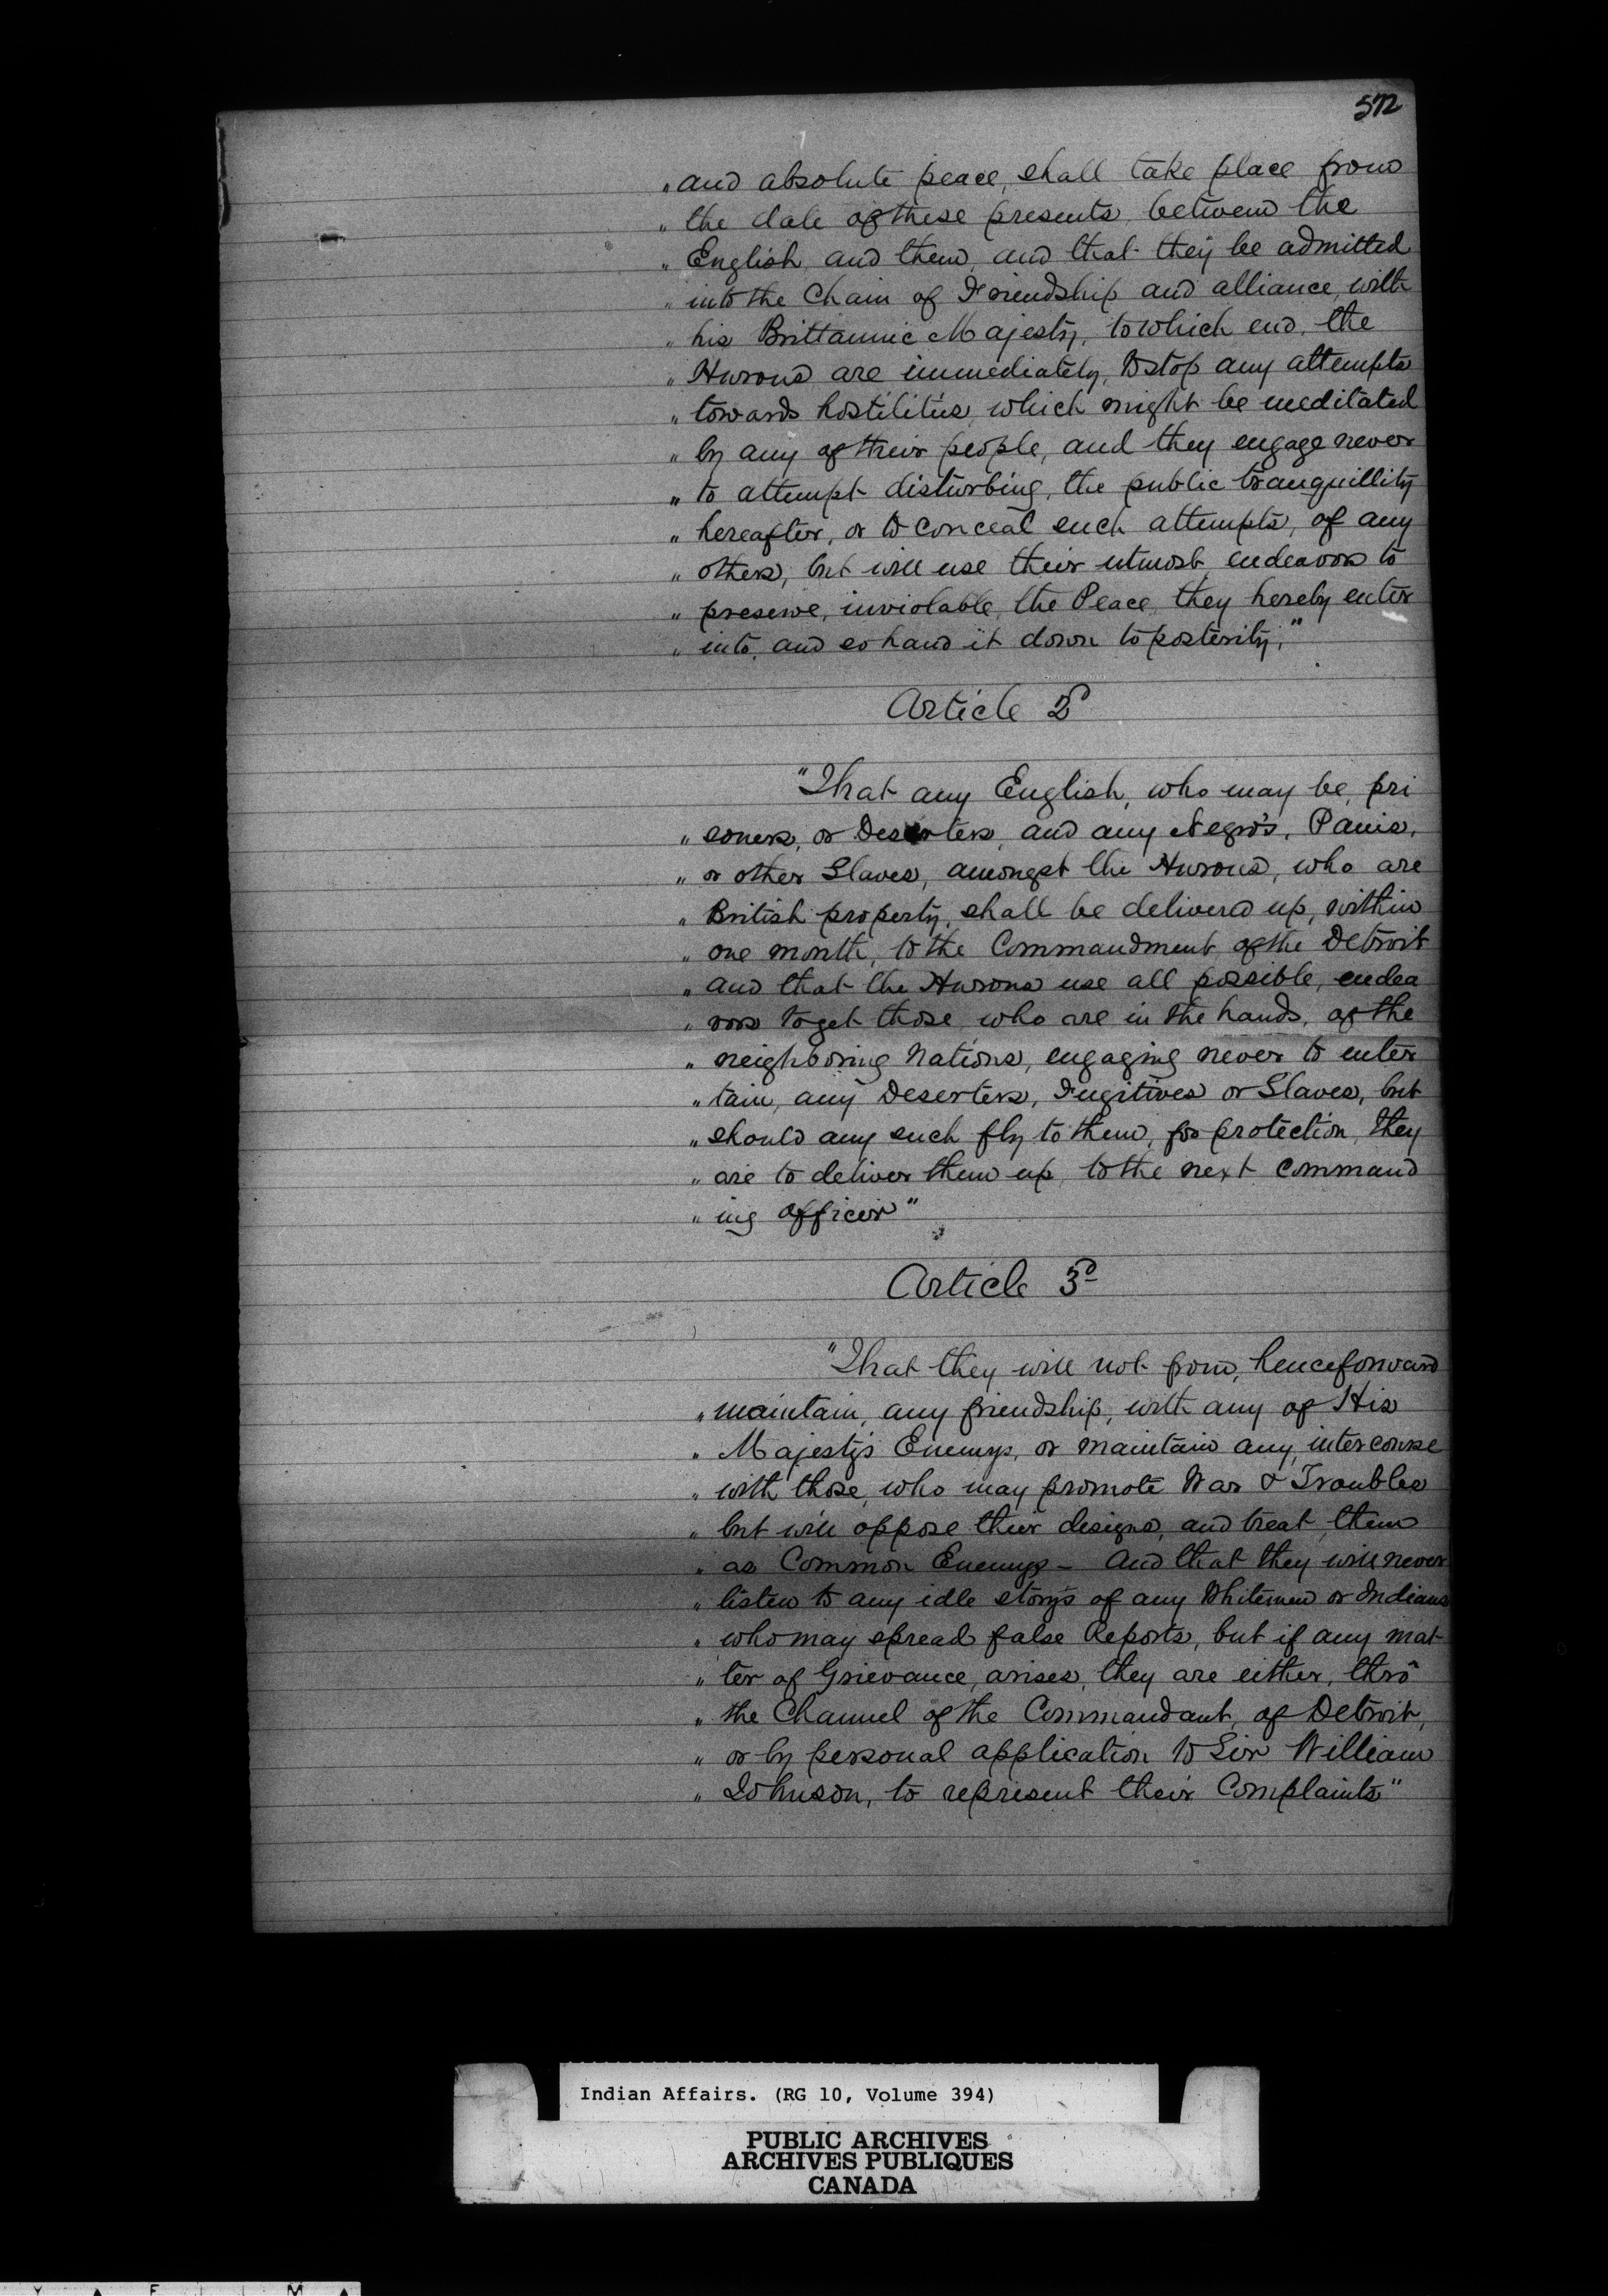 572
„ and absolute peace, shall take place from
„ the date of these presents between the
„ English and them, and that they be admitted
„ into the Chain of Friendship and alliance, with
„ his Brittannic Majesty, to which end, the
„ Hurons are immediately, to stop any attempts
„ towards hostilities, which might be meditated
„ by any of their people, and they engage never
„ to attempt disturbing, the public tranquillity
„ hereafter, or to conceal such attempts, of any
„ others, but will use their utmost, endeavors to
„ preserve, inviolable, the Peace, they hereby enter
„ into, and so hand it down to posterity,"
Article 2d
"That any English, who may be, pri
„ soners, or Deserters, and any Negro's, Panis,
„ or other Slaves, amongst the Hurons, who are
„ British property, shall be delivered up, within
„ one month, to the Commandment of the Detroit
„ and that the Hurons use all possible, endea
„ vors to get those, who are in the hands, of the
„ neighboring Nations, engaging never to enter
„ tain, any Deserters, Fugitives or Slaves, but
„ should any such fly to them, for protection, they
„ are to deliver them up, to the next command
„ ing officer"
Article 3d
"That they will not from, henceforward
„ maintain, any friendship, with any of His
„ Majesty's Enemys, or maintain any, intercourse
„ with those, who may promote War & Troubles
„ but will oppose their designs, and treat, them
„ as Common Enemys - And that they will never
„ listen to any idle story's of any Whitemen or Indians
„ who may spread false Reports, but if any mat-
„ ter of Grievance, arises, they are either, thro'
„ the Channel of the Commandant, of Detroit,
„ or by personal application to Sir William
„ Johnson, to represent their Complaints"
Indian Affairs. (RG 10, Volume 394)
PUBLIC ARCHIVES
ARCHIVES PUBLIQUES
CANADA